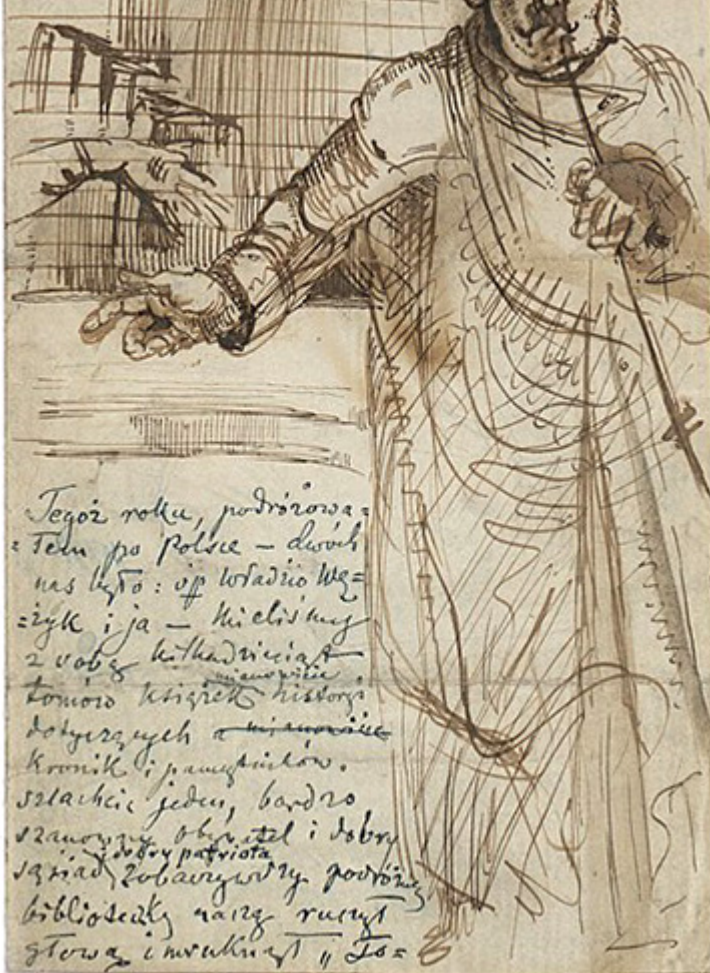 Tegoż roku, podróżowa=
=łem po Polsce – dwóch
nas było: śp Władzio Wę=
=żyk i ja – mieliśmy
z sobą kilkadziesiąt
tomów książek mianowicie historyi
dotyczących a mianowicie
kronik i pamiętników.
szlachcic jeden, bardzo
szanowny obywatel i dobry
sąsiad i dobry patriota zobaczywszy podróżną
biblioteczkę naszą ruszył
głową i mruknął „ To=